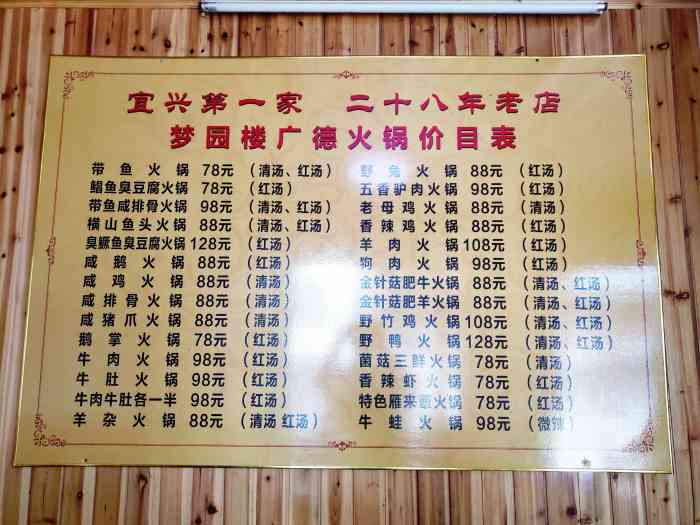 宜兴第一家 二十八年老店
梦园楼广德火锅价目表
带鱼火锅 78元 (清汤、红汤)
鲳鱼臭豆腐火锅 78元 (红汤)
带鱼咸排骨火锅 98元 (清汤、红汤)
横山鱼头火锅 88元 (清汤、红汤)
臭鳜鱼臭豆腐火锅 128元 (红汤)
咸鹅火锅 88元 (红汤)
咸鸡火锅 88元 (清汤)
咸排骨火锅 88元 (清汤)
咸猪爪火锅 88元 (清汤)
鹅掌火锅 78元 (红汤)
牛肉火锅 98元 (红汤)
牛肚火锅 98元 (红汤)
牛肉牛肚各一半 98元 (红汤)
羊杂火锅 88元 (清汤 红汤)
野兔火锅 88元 (红汤)
五香驴肉火锅 98元 (红汤)
老母鸡火锅 88元 (清汤)
香辣鸡火锅 88元 (红汤)
羊肉火锅 108元 (红汤)
狗肉火锅 98元 (红汤)
金针菇肥牛火锅 88元 (清汤、红汤)
金针菇肥羊火锅 88元 (清汤、红汤)
野竹鸡火锅 108元 (清汤、红汤)
野鸭火锅 128元 (清汤、红汤)
菌菇三鲜火锅 78元 (清汤)
香辣虾火锅 78元 (红汤)
特色雁来蕈火锅 78元 (红汤)
牛蛙火锅 98元 (微辣)